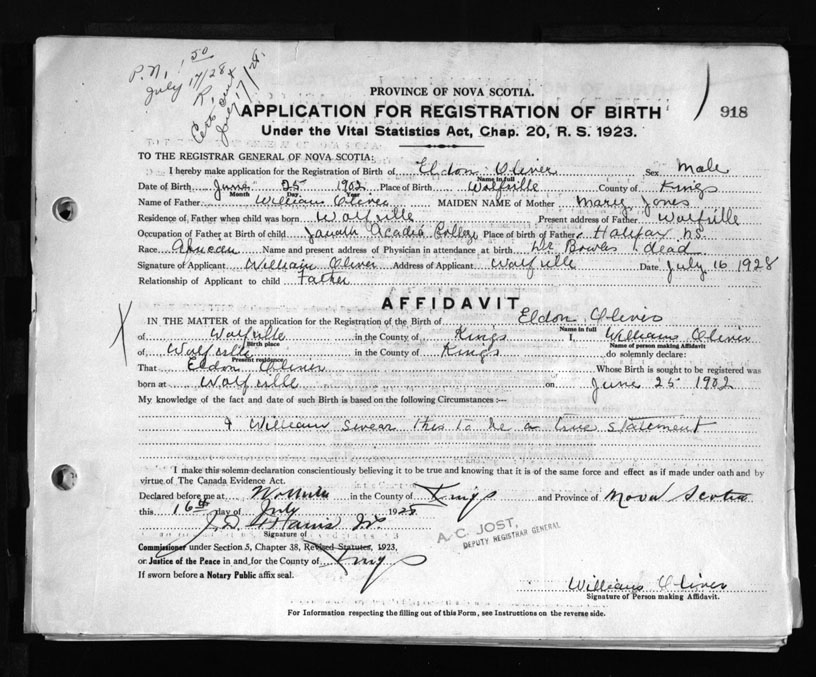 P.N. 1 50
July 17/28
R.
Cert sent
July 17/28.
PROVINCE OF NOVA SCOTIA.
APPLICATION FOR REGISTRATION OF BIRTH
918
Under the Vital Statistics Act, Chap. 20, R. S. 1923.
TO THE REGISTRAR GENERAL OF NOVA SCOTIA:
I hereby make application for the Registration of Birth of Eldon Oliver Sex Male
Name in full
Date of Birth June 25 1902 Place of Birth Wolfville County of Kings
Month Day Year
Name of Father William Oliver MAIDEN NAME of Mother Mary Jones
Residence of Father when child was born Wolfville Present address of Father Wolfville
Occupation of Father at Birth of child Acadia College Place of birth of Father Halifax N.S.
Race African Name and present address of Physician in attendance at birth Dr Bowles dead
Signature of Applicant William Oliver Address of Applicant Wolfville Date July 16 1928
Relationship of Applicant to child Father
AFFIDAVIT
IN THE MATTER of the application for the Registration of the Birth of Eldon Oliver
Name in full
of Wolfville in the County of Kings I, William Oliver
Birth place Name of person making Affidavit
of Wolfville in the County of Kings do solemnly declare:
Present residence
That Eldon Oliver Whose Birth is sought to be registered was
born at Wolfville on June 25 1902
My knowledge of the fact and date of such Birth is based on the following Circumstances :—
I William swear this to be a true statement
I make this solemn declaration conscientiously believing it to be true and knowing that it is of the same force and effect as if made under oath and by
virtue of The Canada Evidence Act.
Declared before me at Wolfville in the County of Kings and Province of Nova Scotia
this 16th day of July 1928
Signature of
A. C. JOST,
DEPUTY REGISTRAR GENERAL
Commissioner under Section 5, Chapter 38, Revised Statutes, 1923,
or Justice of the Peace in and for the County of Kings
If sworn before a Notary Public affix seal.
William Oliver
Signature of Person making Affidavit.
For Information respecting the filling out of this Form, see Instructions on the reverse side.